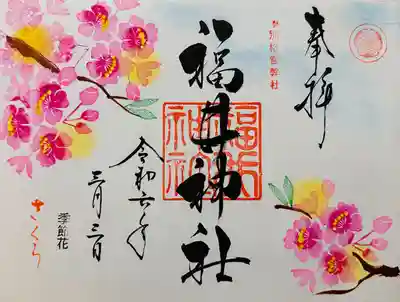 奉拝
別格官幣社
福井神社
福井
神社
令和六年
三月三日
季節花
さくら